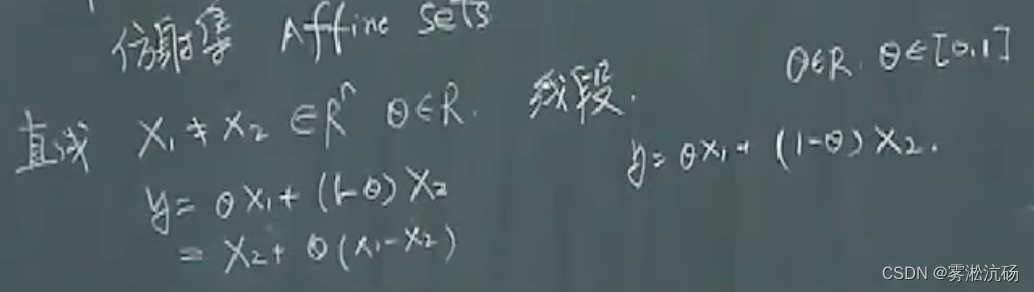 仿射集 Affine Sets
直线 X₁ ≠ X₂ ∈ Rⁿ θ∈R.
y = θX₁ + (1-θ)X₂
= X₂ + θ(X₁-X₂)
线段. θ∈R. θ∈[0,1]
y = θX₁ + (1-θ)X₂.
CSDN @雾淞沆砀